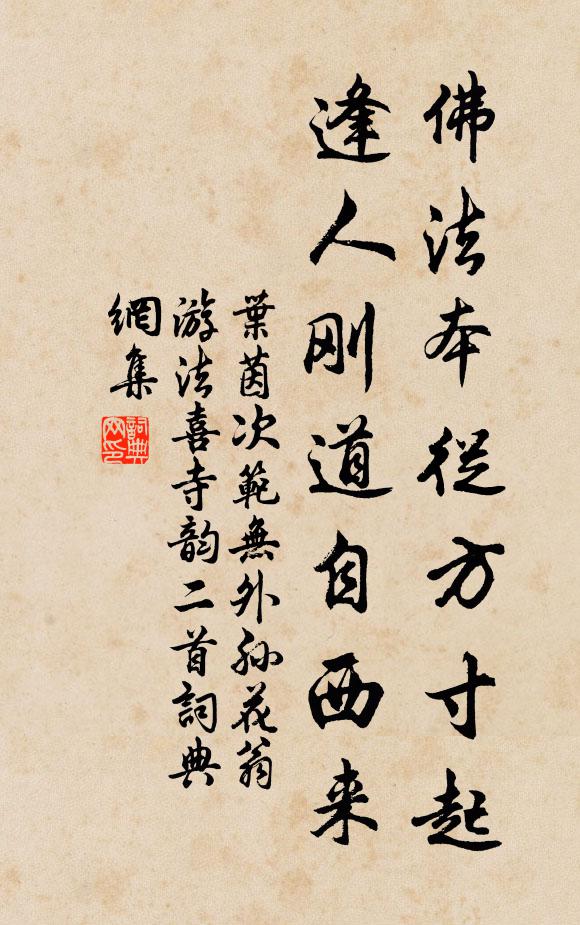 佛法本從方寸起
逢人刚道自西来
葉茵次範無外孙花翁
游法喜寺韵二首詞典
網集
詞典
网印